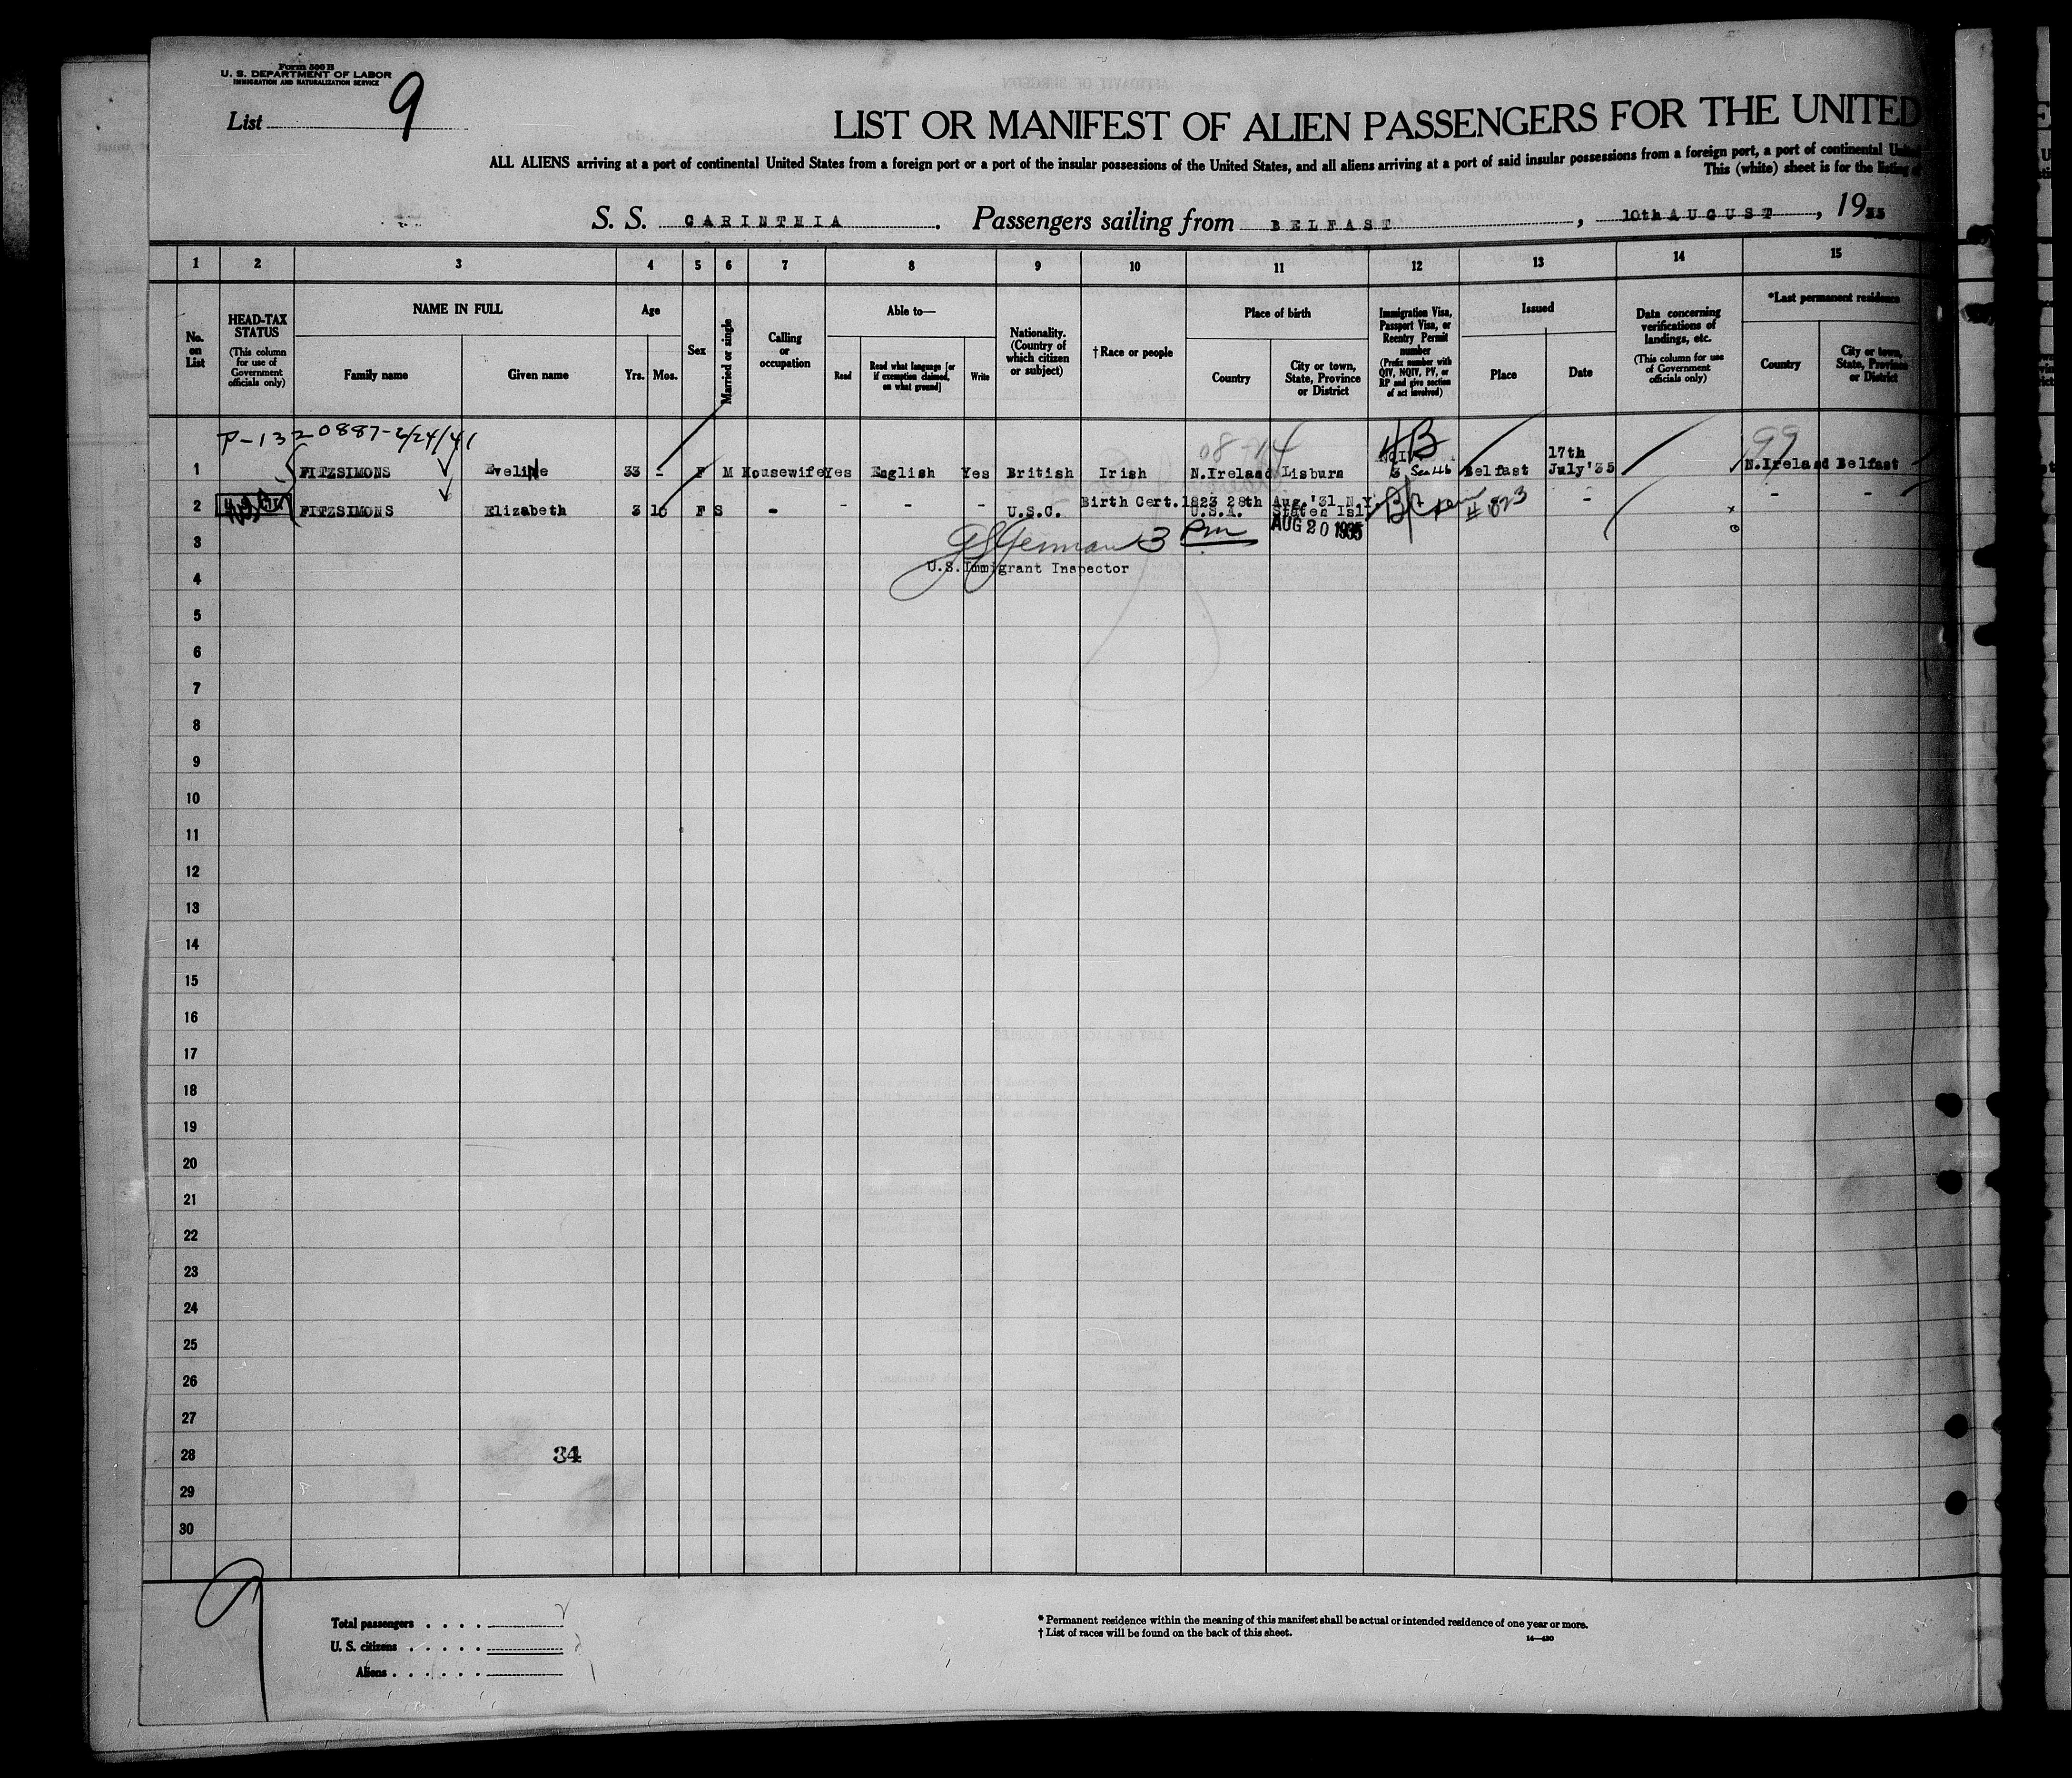 Form 500 B
U. S. DEPARTMENT OF LABOR
IMMIGRATION AND NATURALIZATION SERVICE
List 9
LIST OR MANIFEST OF ALIEN PASSENGERS FOR THE UNITED
ALL ALIENS arriving at a port of continental United States from a foreign port or a port of the insular possessions of the United States, and all aliens arriving at a port of said insular possessions from a foreign port, a port of continental
This (white) sheet is for the listing
S. S. CARINTHIA. Passengers sailing from BELFAST, 10th AUGUST, 1935
1 2 3 4 5 6 7 8 9 10 11 12 13 14 15
No. on List
HEAD-TAX STATUS (This column for use of Government officials only)
NAME IN FULL
Family name
Given name
Age
Yrs. Mos.
Sex
Married or single
Calling or occupation
Able to—
Read
Read what language [or if exemption claimed, on what ground]
Write
Nationality. (Country of which citizen or subject)
† Race or people
Place of birth
Country
City or town, State, Province or District
Immigration Visa, Passport Visa, or Reentry Permit number (Prefix number with QIV, NQIV, PV, or RP and give section of act involved)
Issued
Place
Date
Data concerning verifications of landings, etc. (This column for use of Government officials only)
*Last permanent residence
Country
City or town, State, Province or District
P-132 0887-2/24/41
1 FITZSIMONS Eveline 33 - F M Housewife Yes English Yes British Irish N.Ireland Lisburn Belfast 17th July'35 N.Ireland Belfast
99
Birth Cert.1823 28th Aug.'31 N.Y.
2 FITZSIMONS Elizabeth 3 10 F S - - - - U.S.C. U.S.A. Staten Isl. # 823 - - -
AUG 20 1935
3 Pm
U.S.Immigrant Inspector
3
4
5
6
7
8
9
10
11
12
13
14
15
16
17
18
19
20
21
22
23
24
25
26
27
28
34
29
30
9
Total passengers . . . .
U. S. citizens . . . . .
Aliens . . . . . .
* Permanent residence within the meaning of this manifest shall be actual or intended residence of one year or more.
† List of races will be found on the back of this sheet.
14—430